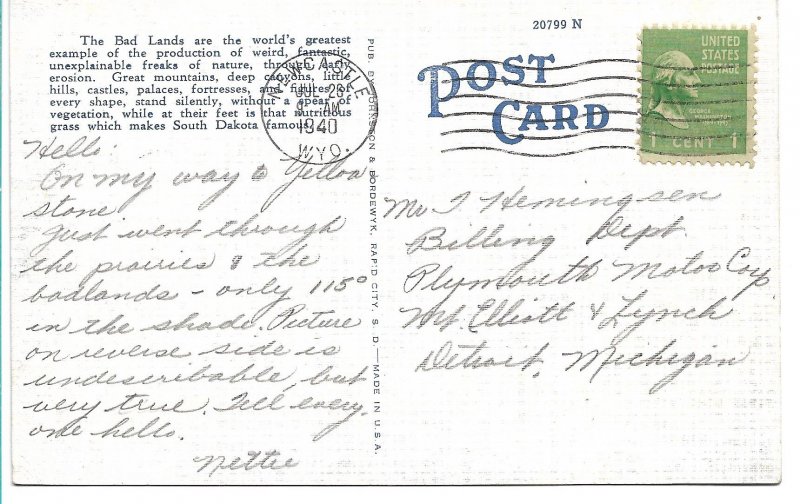 The Bad Lands are the world's greatest
example of the production of weird, fantastic,
unexplainable freaks of nature, through early
erosion. Great mountains, deep canyons, little
hills, castles, palaces, fortresses, and figures of
every shape, stand silently, without a spear of
vegetation, while at their feet is that nutritious
grass which makes South Dakota famous.
Hello:
On my way to Yellow
stone.
Just went through
the prairies & the
badlands - only 115°
in the shade. Picture
on reverse side is
undescribable, but
very true. Tell every-
one hello.
Nettie
PUB. BY JOHNSSON & BORDEWYK, RAPID CITY, S. D.—MADE IN U.S.A.
20799 N
POST
CARD
NEWCASTLE
JUL 23
9 AM
1940
WYO.
UNITED
STATES
POSTAGE
GEORGE
WASHINGTON
1 CENT 1
Mr T Hemingsen
Billing Dept
Plymouth Motor Corp
Mt. Elliott & Lynch
Detroit, Michigan